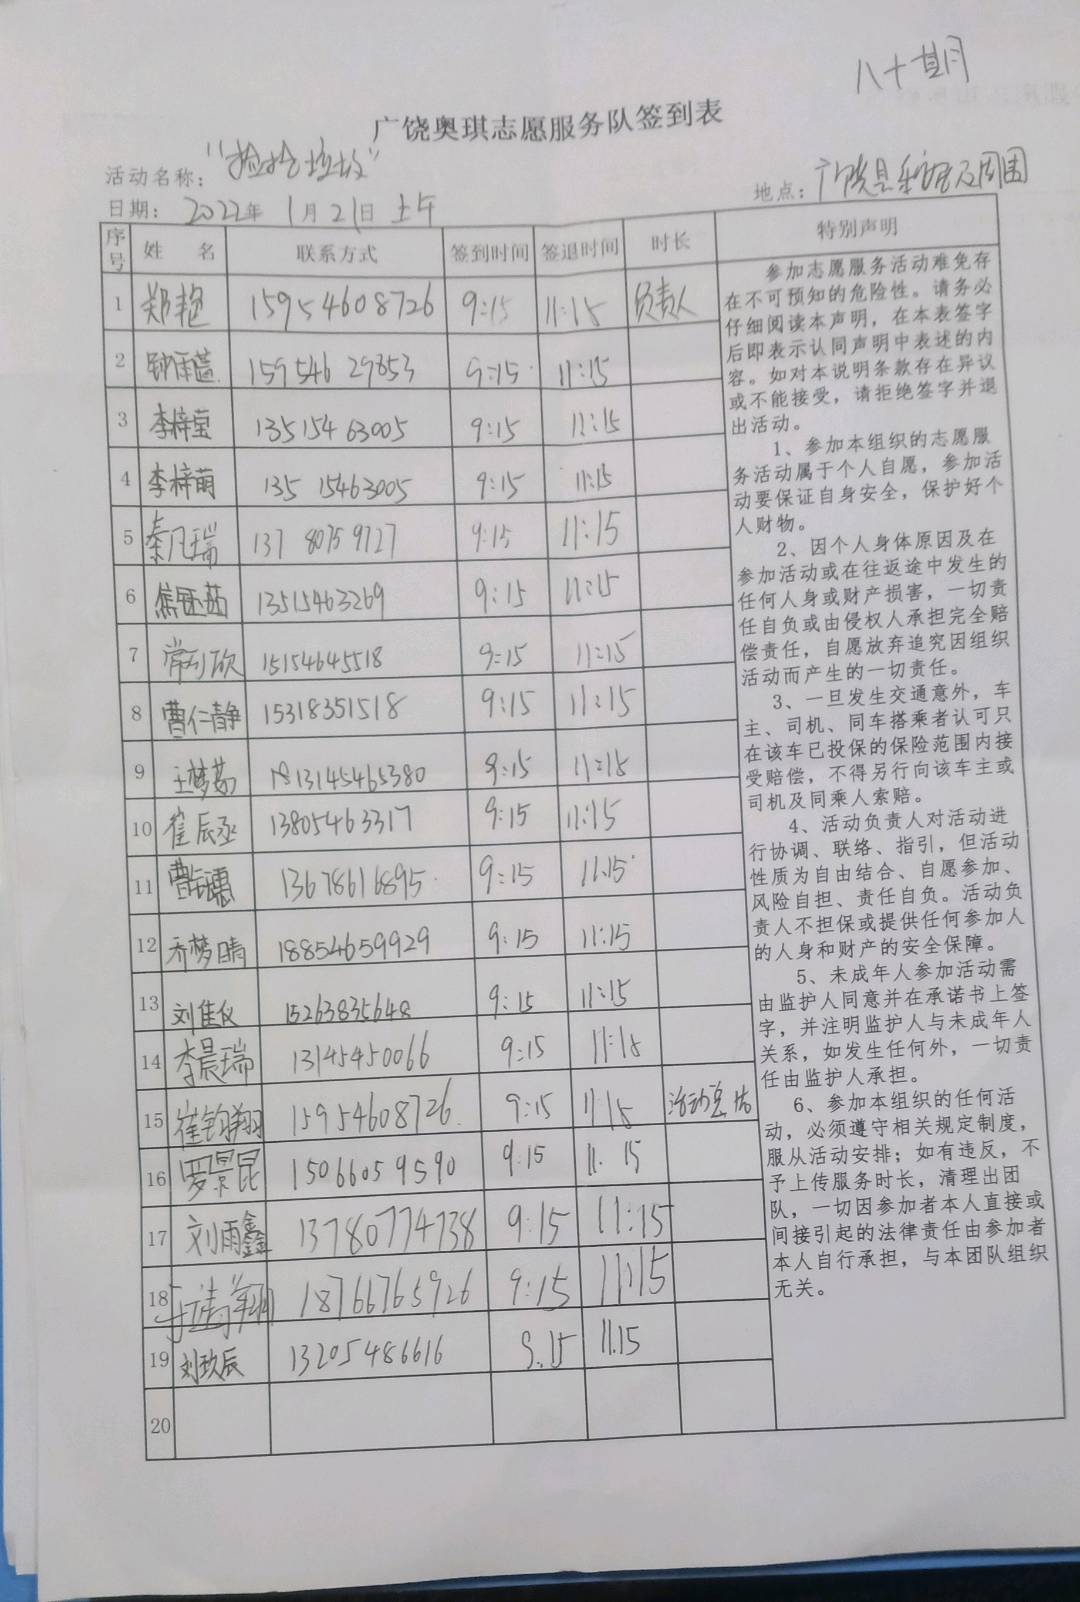 广饶奥琪志愿服务队签到表
活动名称：“捡拾垃圾”
地点：广饶县
日期： 2022年 1月21日 上午
序号 姓 名 联系方式 签到时间 签退时间 时长 特别声明
1 郑艳 15954608726 9:15 11:15 负责人
2 15954629853 9:15 11:15
3 李梓莹 13515463005 9:15 11:15
4 李梓萌 13515463005 9:15 11:15
5 秦凡瑞 13780759727 9:15 11:15
6 焦钰茹 13515463269 9:15 11:15
7 常 欣 15154645518 9:15 11:15
8 曹仁静 15318351518 9:15 11:15
9 王梦茹 9:15 11:15
10 崔辰丞 13805463317 9:15 11:15
11 曹 13678616895 9:15 11:15
12 乔梦晴 18854659929 9:15 11:15
13 刘佳仪 15263835648 9:15 11:15
14 李晨瑞 13145450066 9:15 11:15
15 崔钧翔 15954608726 9:15 11:15 活动总结
16 罗景昆 15066059590 9:15 11:15
17 刘雨鑫 13780774738 9:15 11:15
18 18766765926 9:15 11:15
19 刘玖辰 13205486616 9.15 11.15
20
参加志愿服务活动难免存
在不可预知的危险性。请务必
仔细阅读本声明，在本表签字
后即表示认同声明中表述的内
容。如对本说明条款存在异议
或不能接受，请拒绝签字并退
出活动。
1、参加本组织的志愿服
务活动属于个人自愿，参加活
动要保证自身安全，保护好个
人财物。
2、因个人身体原因及在
参加活动或在往返途中发生的
任何人身或财产损害，一切责
任自负或由侵权人承担完全赔
偿责任，自愿放弃追究因组织
活动而产生的一切责任。
3、一旦发生交通意外，车
主、司机、同车搭乘者认可只
在该车已投保的保险范围内接
受赔偿，不得另行向该车主或
司机及同乘人索赔。
4、活动负责人对活动进
行协调、联络、指引，但活动
性质为自由结合、自愿参加、
风险自担、责任自负。活动负
责人不担保或提供任何参加人
的人身和财产的安全保障。
5、未成年人参加活动需
由监护人同意并在承诺书上签
字，并注明监护人与未成年人
关系，如发生任何外，一切责
任由监护人承担。
6、参加本组织的任何活
动，必须遵守相关规定制度，
服从活动安排；如有违反，不
予上传服务时长，清理出团
队，一切因参加者本人直接或
间接引起的法律责任由参加者
本人自行承担，与本团队组织
无关。